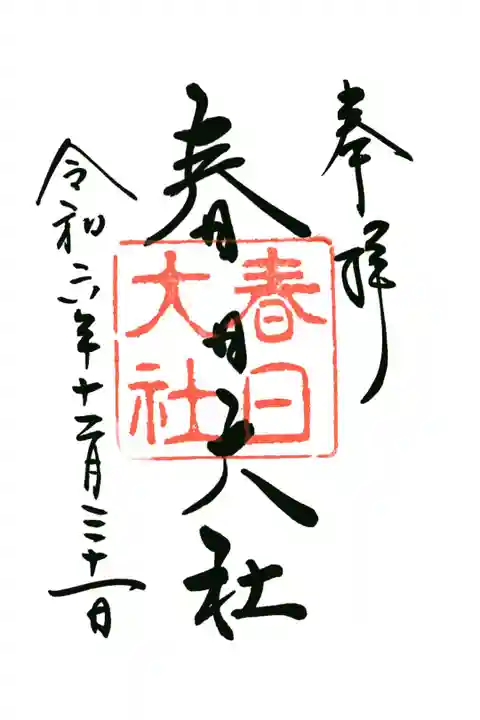 奉拝
春日大社
春日
大社
令和六年十二月三十一日